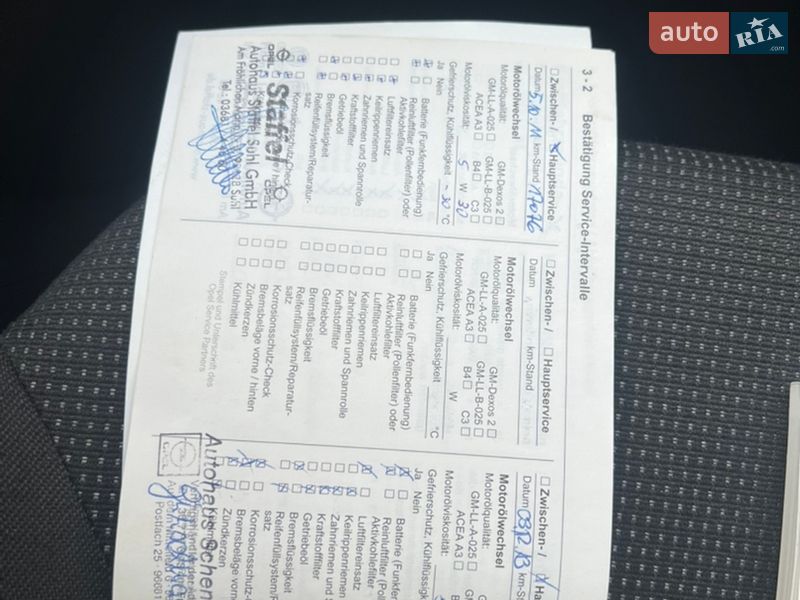 auto RIA .com
3 - 2 Bestätigung Service-Intervalle
Zwischen- / Hauptservice
Datum 5.10.11 km-Stand 17076
Motorölwechsel
Motorölqualität: GM-Dexos 2
GM-LL-A-025 GM-LL-B-025
ACEA A3 B4 C3
Motorölviskosität: 5 W 30
Gefrierschutz, Kühlflüssigkeit -30 °C
Ja Nein
Batterie (Funkfernbedienung)
Reinluftfilter (Pollenfilter) oder
Aktivkohlefilter
Luftfiltereinsatz
Keilrippenriemen
Zahnriemen und Spannrolle
Kraftstofffilter
Getriebeöl
Bremsflüssigkeit
Reifenfüllsystem/Reparatur-
satz
Korrosionsschutz-Check
OPEL Staffel OPEL
Autohaus Staffel Suhl GmbH
Zwischen- / Hauptservice
Datum km-Stand
Motorölwechsel
Motorölqualität: GM-Dexos 2
GM-LL-A-025 GM-LL-B-025
ACEA A3 B4 C3
Motorölviskosität: W
Gefrierschutz, Kühlflüssigkeit °C
Ja Nein
Batterie (Funkfernbedienung)
Reinluftfilter (Pollenfilter) oder
Aktivkohlefilter
Luftfiltereinsatz
Keilrippenriemen
Zahnriemen und Spannrolle
Kraftstofffilter
Getriebeöl
Bremsflüssigkeit
Reifenfüllsystem/Reparatur-
satz
Korrosionsschutz-Check
Bremsbeläge vorne / hinten
Zündkerzen
Kühlmittel
Stempel und Unterschrift des
Opel Service Partners
Zwischen- / Ha
Datum km-S
Motorölwechsel
Motorölqualität:
GM-LL-A-025
ACEA A3
Motorölviskosität:
Gefrierschutz, Kühlflüssig
Ja Nein
Batterie (Funkfe
Reinluftfilter (P
Aktivkohlefilter
Luftfiltereinsatz
Keilrippenriemen
Zahnriemen und S
Kraftstofffilter
Getriebeöl
Bremsflüssigkeit
Reifenfüllsystem/
satz
Korrosionsschutz-C
Bremsbeläge vorn
Zündkerzen
Autohaus Scher
Postfach 25